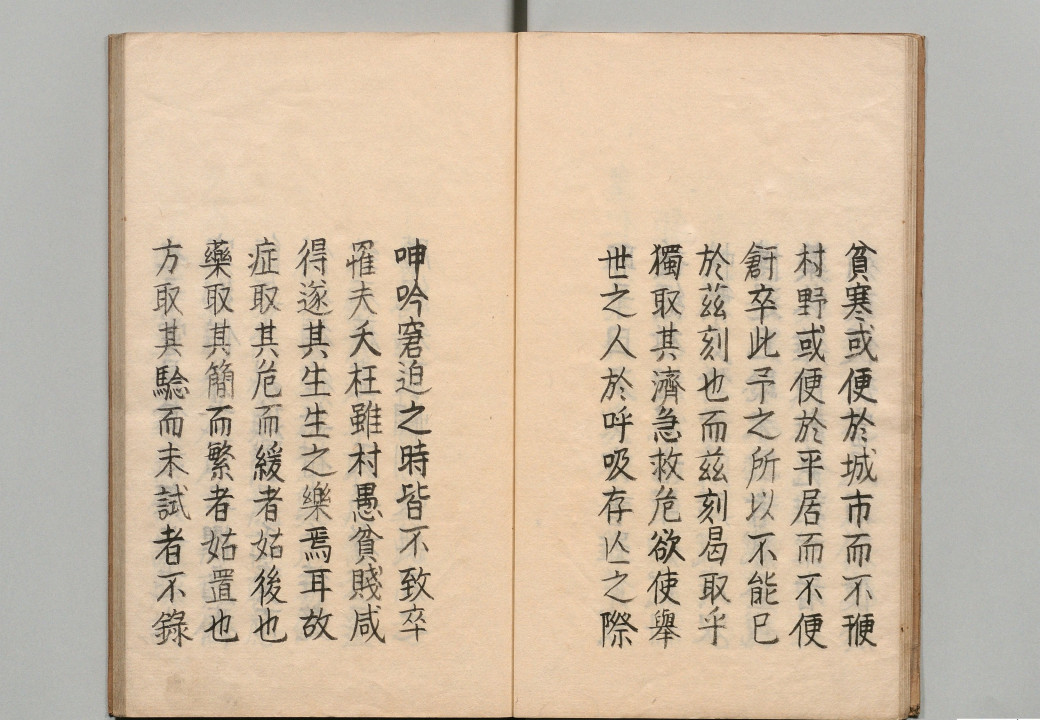 貧寒或便於城市而不便
村野或便於平居而不便
卒此予之所以不能已
於茲刻也而茲刻曷取乎
獨取其濟急救危欲使舉
世之人於呼吸存亾之際
呻吟窘迫之時皆不致卒
罹夫夭枉雖村愚貧賤咸
得遂其生生之樂焉耳故
症取其危而緩者姑後也
藥取其簡而繁者姑置也
方取其騐而未試者不錄